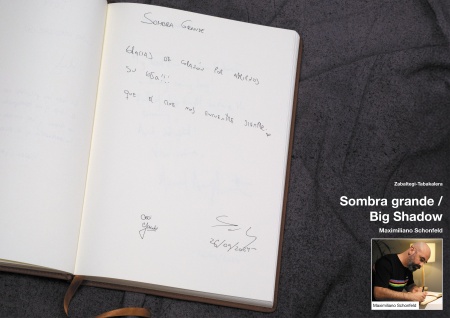 SOMBRA GRANDE
GRACIAS DE CORAZÓN POR ABRIRNOS
SU CASA!!!
QUE EL CINE NOS ENCUENTRE SIEMPRE
Zabaltegi-Tabakalera
Sombra grande /
Big Shadow
Maximiliano Schonfeld
Maximiliano Schonfeld